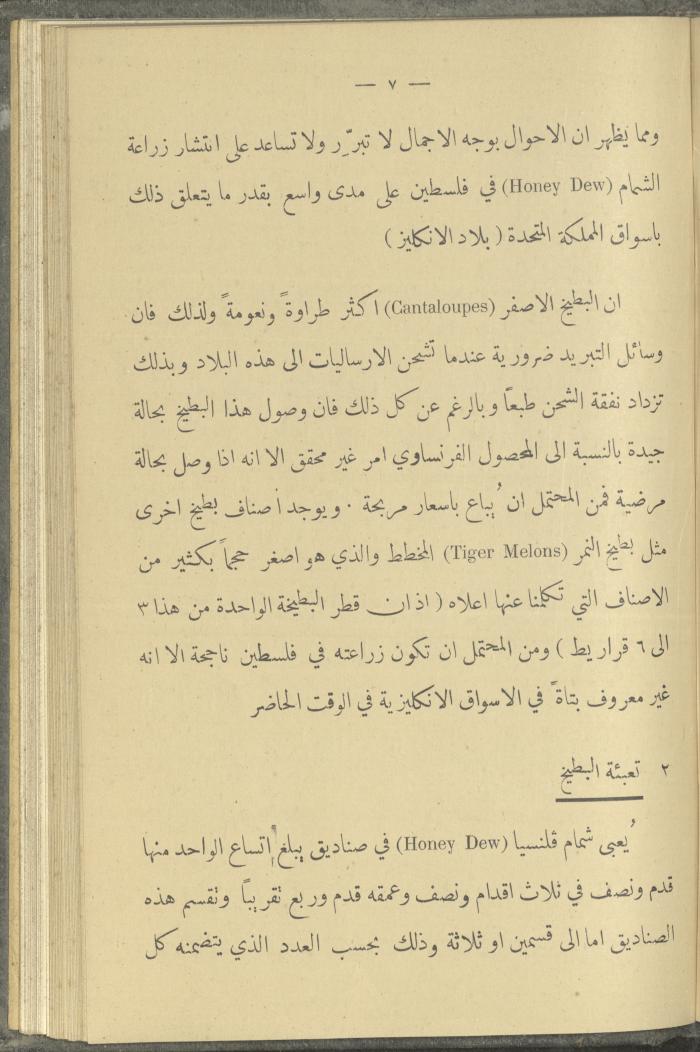 — ٧ —
ومما يظهر ان الاحوال بوجه الاجمال لا تبرِّر ولا تساعد على انتشار زراعة
الشمام (Honey Dew) في فلسطين على مدى واسع بقدر ما يتعلق ذلك
باسواق المملكة المتحدة ( بلاد الانكليز )
ان البطيخ الاصفر (Cantaloupes) اكثر طراوةً ونعومةً ولذلك فان
وسائل التبريد ضرورية عندما تشحن الارساليات الى هذه البلاد وبذلك
تزداد نفقة الشحن طبعاً وبالرغم عن كل ذلك فان وصول هذا البطيخ بحالة
جيدة بالنسبة الى المحصول الفرنساوي امر غير محقق الا انه اذا وصل بحالة
مرضية فمن المحتمل ان يُباع باسعار مربحة . ويوجد أصناف بطيخ اخرى
مثل بطيخ النمر (Tiger Melons) المخطط والذي هو اصغر حجماً بكثير من
الاصناف التي تكلمنا عنها اعلاه ( اذ ان قطر البطيخة الواحدة من هذا ٣
الى ٦ قراريط ) ومن المحتمل ان تكون زراعته في فلسطين ناجحة الا انه
غير معروف بتاةً في الاسواق الانكليزية في الوقت الحاضر
٢ تعبئة البطيخ
يُعبى شمام ڤلنسيا (Honey Dew) في صناديق يبلغ إتساع الواحد منها
قدم ونصف في ثلاث اقدام ونصف وعمقه قدم وربع تقريباً وتقسم هذه
الصناديق اما الى قسمين او ثلاثة وذلك بحسب العدد الذي يتضمنه كل